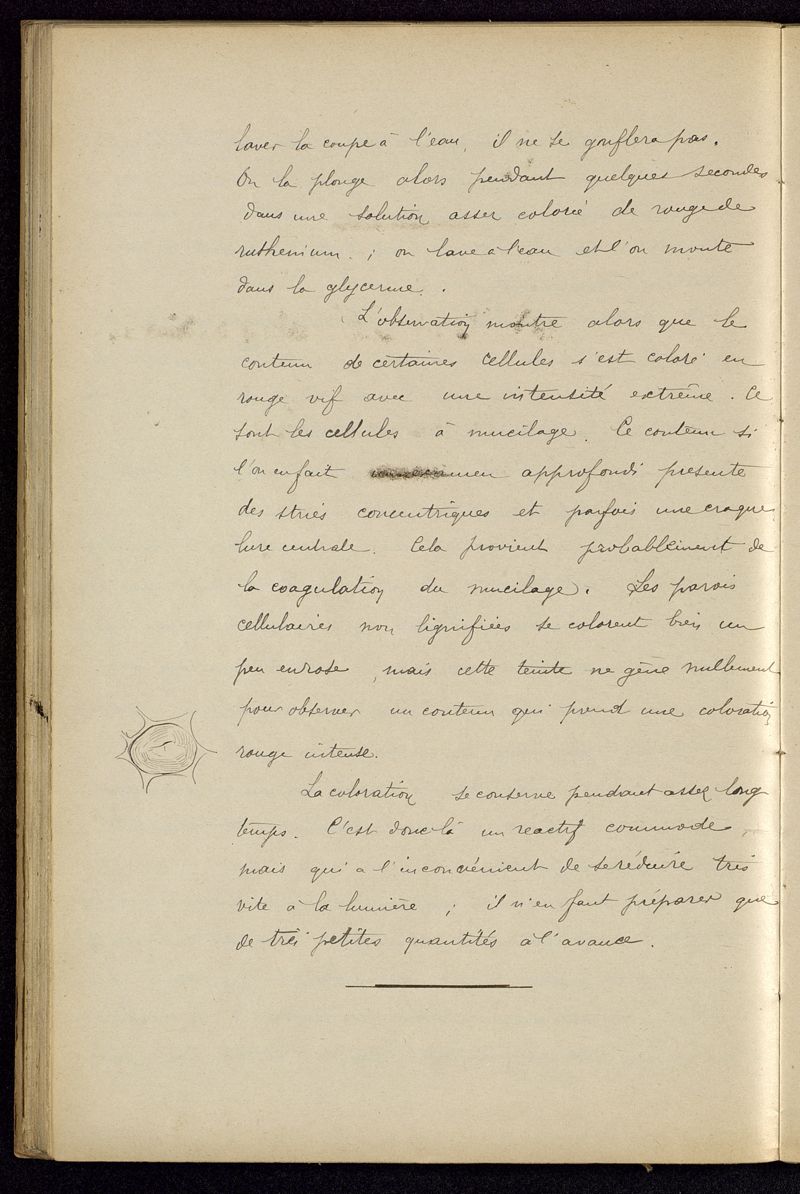 laver la coupe à l'eau, il ne se gonflera pas.
On la plonge alors pendant quelques secondes
dans une solution assez colorée de rouge de
ruthenium ; on lave à l'eau et l'on monte
dans la glycerine.
L'observation montre alors que le
contenu de certaines cellules s'est coloré en
rouge vif avec une intensité extrême. Ce
sont les cellules à mucilage. Ce contenu si
l'on en fait un examen approfondi présente
des stries concentriques et parfois une craque
lure centrale. Cela provient probablement de
la coagulation du mucilage. Les parois
cellulaires non lignifiées se colorent bien un
peu en rose, mais cette teinte ne gêne nullement
pour observer un contenu qui prend une coloration
rouge intense.
La coloration se conserve pendant assez long
temps. C'est donc là un reactif commode
mais qui a l'inconvénient de se réduire très
vite à la lumière ; il n'en faut préparer que
de très petites quantités à l'avance.